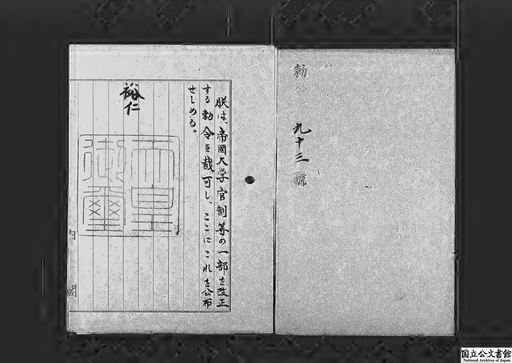 勅
九十三
號
朕は、帝國大学官制等の一部を改正
する勅令を裁可し、ここにこれを公布
せしめる。
裕仁
天皇
御璽
内閣
国立公文書館
National Archives of Japan